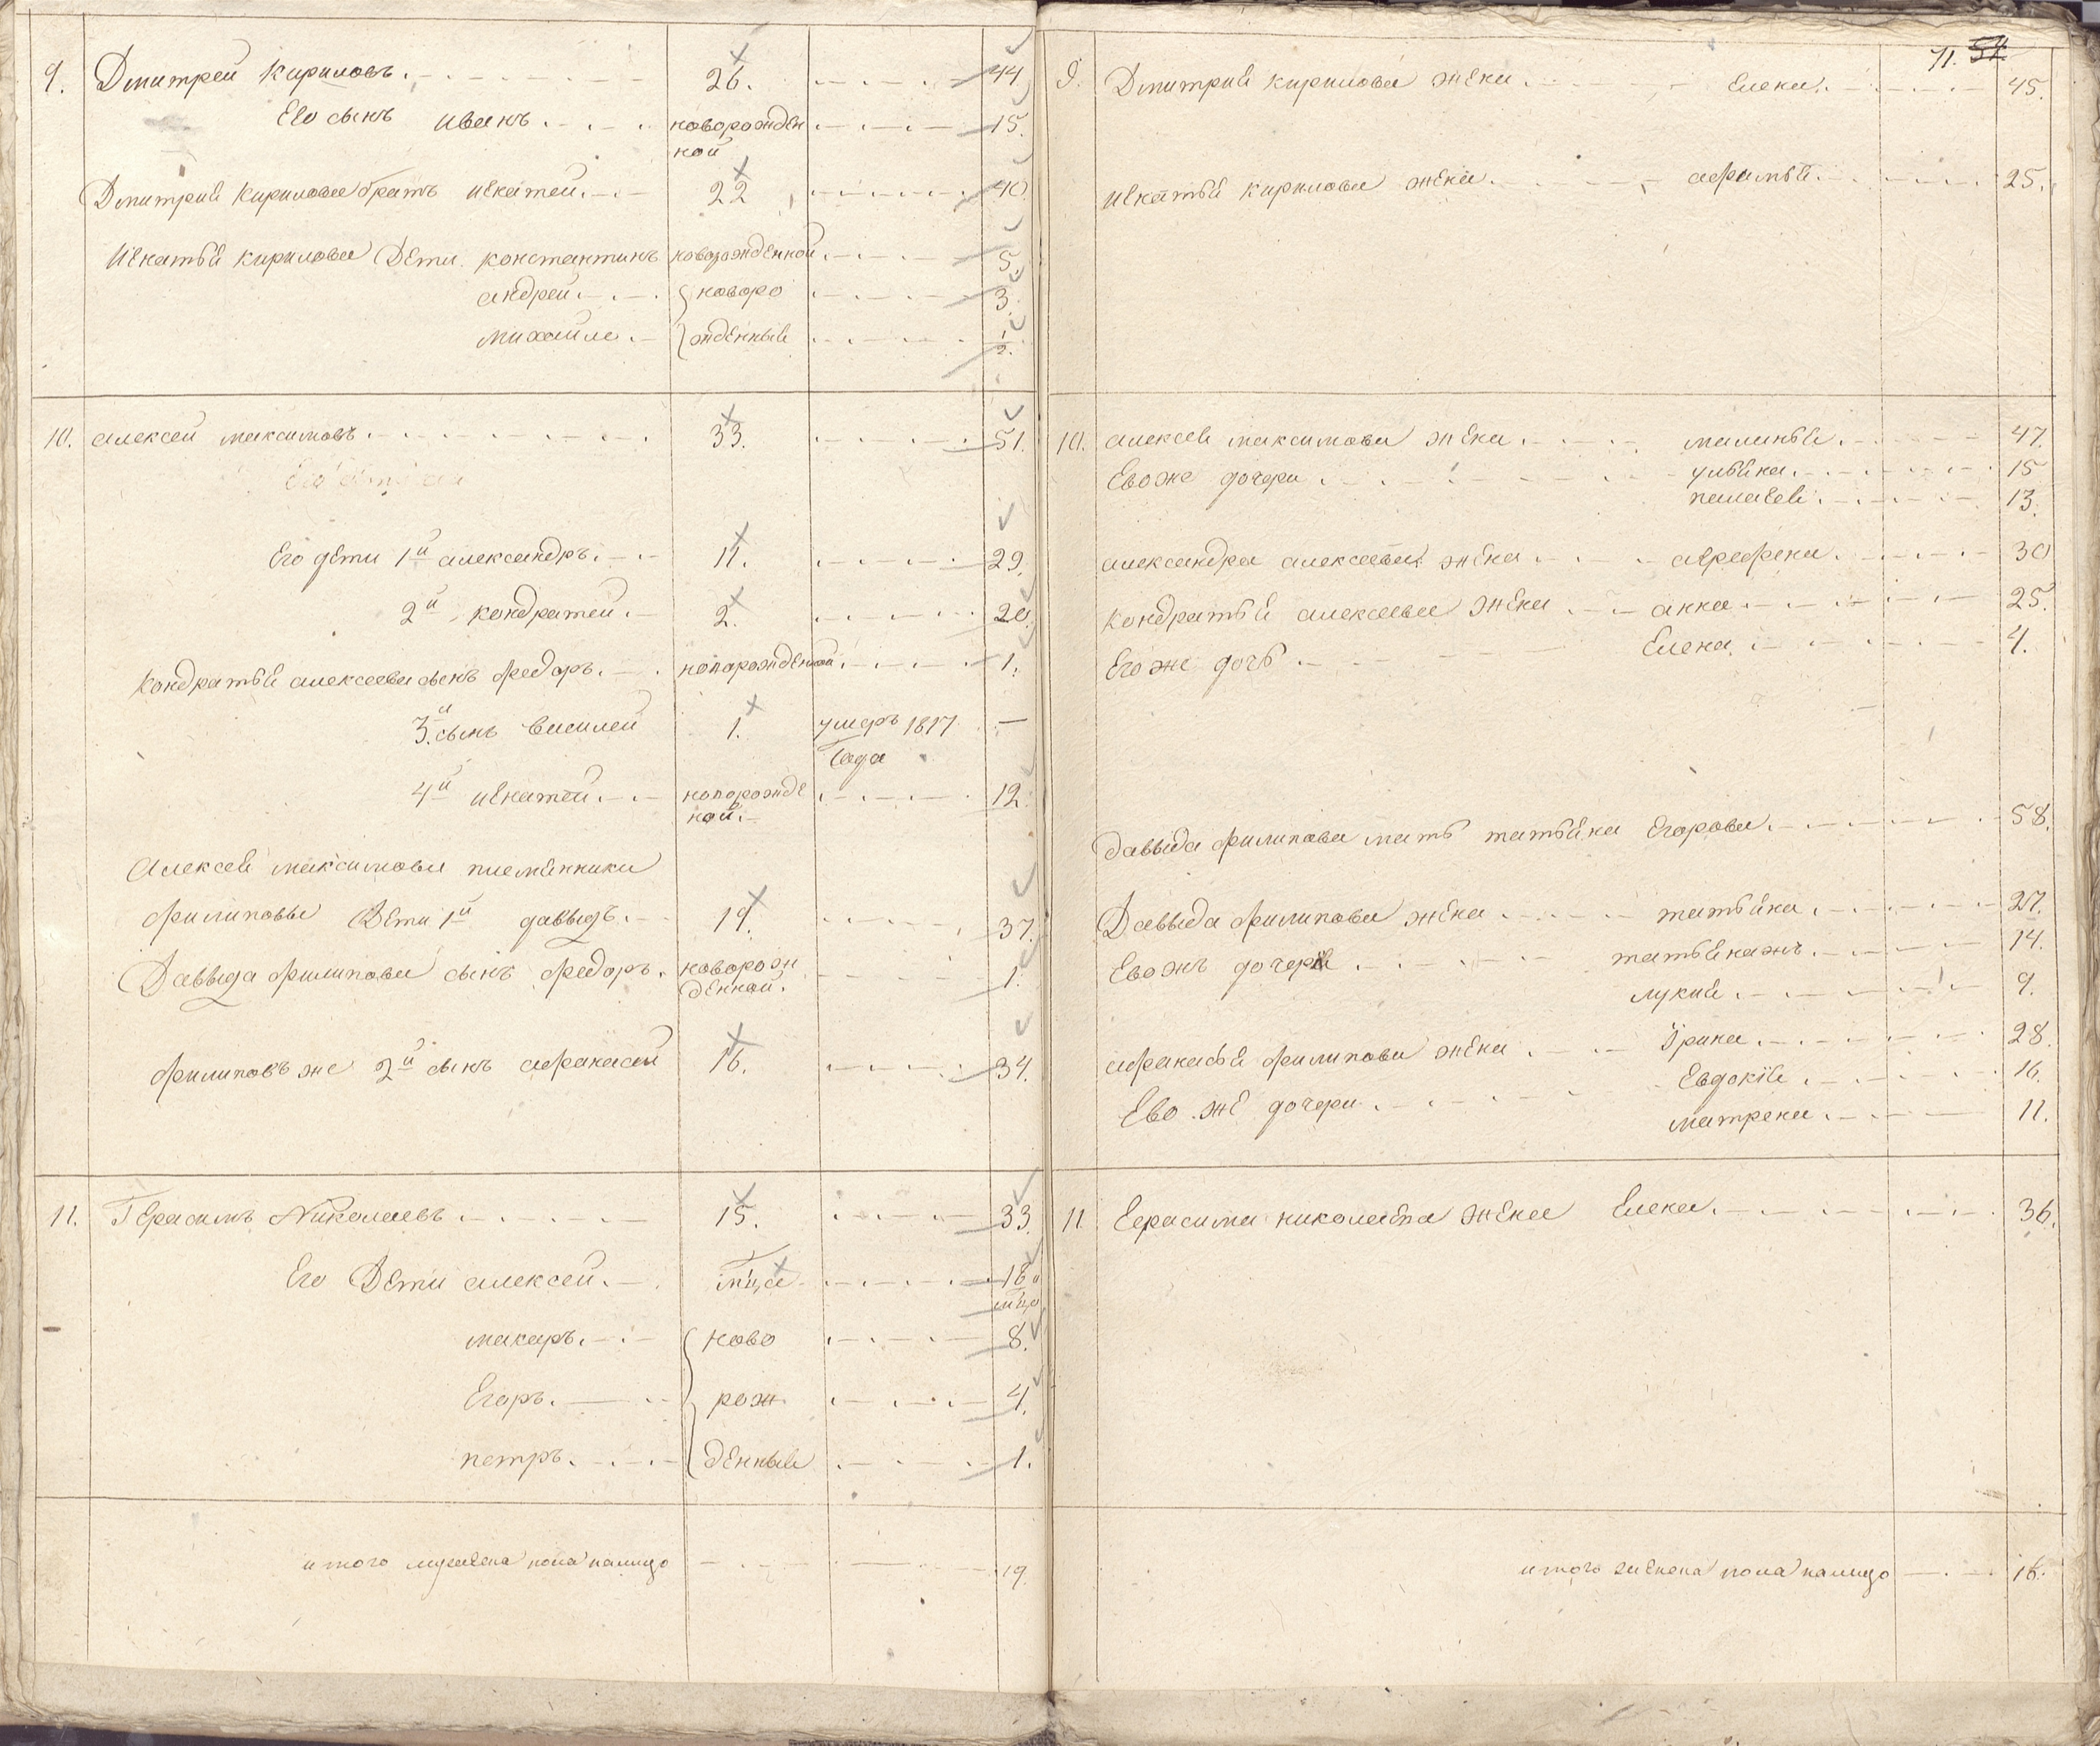 9. Дмитрей Кириловъ. 26. 44
Ево сынъ иванъ. новорожден 15.
ной
Дмитрия Кирилова братъ игнатей. 22 40
Игнатья кирилова Дети константинъ новорожденной. 5.
андрей. новоро 3.
михайла. жденныя 1/2.
10. алексей максимовъ. 33. 51.
Его дети 1й александръ. 11. 29.
2й кондратей. 2. 20.
Кондратья алексеева сынъ федоръ. новорожденной. 1.
3й сынъ василей 1. умеръ 1817 —
года
4й игнатей. новорожде 12.
ной.
Алексея максимова племянники
филиповы Дети 1й давыдъ. 19. 37.
Давыда филипова сынъ федоръ. новорож 1.
денной.
филиповъ же 2й сынъ афанасей 16. 34.
11. Герасимъ Николаевъ. 15. 33
Его Дети алексей. м͞ца 18 и
м͞ца
макаръ. ново 8.
Егоръ. рож 4.
петръ. денныя 1.
итого мужеска пола налицо 19.
71. 54
9. Дмитрия кирилова жена Елена. 45.
игнатья кирилова жена. афимья. 25.
10. алексея максимова жена. маланья. 47.
Евоже дочери ульяна. 15
пелагея. 13.
александра алексеева жена аграфена. 30
кондратья алексеева жена анна 25.
Егоже дочь Елена. 4.
давыда филипова мать татьяна Егорова. 58.
Давыда филипова жена татьяна. 37.
Евожъ дочери татьянажъ. 14.
лукия. 9.
афанасья филипова жена Ирина. 28.
Ево же дочери Евдокия. 16.
матрена. 11.
11. Герасима николаева жена Елена. 36.
итого женска пола налицо 16.